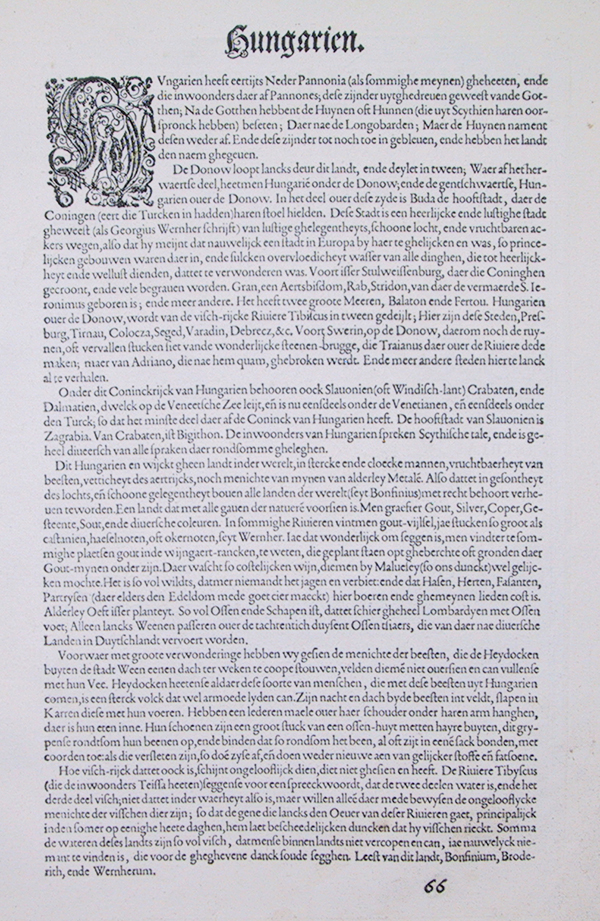 Hungarien.
VNgarien heeft eertijts Neder Pannonia (als sommighe meynen) gheheeten, ende
die inwoonders daer af Pannones; dese zijnder uytghedreuen geweest vande Got-
then; Na de Gotthen hebbent de Huynen oft Hunnen (die uyt Scythien haren oor-
spronck hebben) beseten; Daer nae de Longobarden; Maer de Huynen nament
desen weder af. Ende dese zijnder tot noch toe in gebleuen, ende hebben het landt
den naem ghegeuen.
De Donow loopt lancks deur dit landt, ende deylet in tween; Waer af het her-
waertse deel, heetmen Hungarië onder de Donow, ende de gentschwaertse, Hun-
garien ouer de Donow. In het deel ouer dese zyde is Buda de hooftstadt, daer de
Coningen (eert die Turcken in hadden) haren stoel hielden. Dese Stadt is een heerlicke ende lustighe stadt
gheweest (als Georgius Wernher schrijft) van lustige ghelegentheyts, schoone locht, ende vruchtbaren ac-
kers wegen, also dat hy meijnt dat nauwelijck een stadt in Europa by haer te ghelijcken en was, so prince-
lijcken gebouwen waren daer in, ende sulcken overvloedicheyt wasser van alle dinghen, die tot heerlijck-
heyt ende wellust dienden, dattet te verwonderen was. Voort isser Stulweissenburg, daer die Coninghen
gecroont, ende vele begrauen worden. Gran, een Aertsbisdom, Rab, Stridon, van daer de vermaerde S. Ie-
ronimus geboren is; ende meer andere. Het heeft twee groote Meeren, Balaton ende Fertou. Hungarien
ouer de Donow, wordt van de visch-rijcke Riuiere Tibiscus in tween gedeijlt; Hier zijn dese Steden, Pres-
burg, Tirnau, Colocza, Seged, Varadin, Debrecz, &c. Voort Swerin, op de Donow, daerom noch de ruy-
nen, oft vervallen stucken siet vande wonderlijcke steenen-brugge, die Traianus daer ouer de Riuiere dede
maken; maer van Adriano, die nae hem quam, ghebroken werdt. Ende meer andere steden hier te lanck
al te verhalen.
Onder dit Coninckrijck van Hungarien behooren oock Slauonien (oft Windisch-lant) Crabaten, ende
Dalmatien, dwelck op de Veneetsche Zee leijt, eñ is nu eensdeels onder de Venetianen, eñ eensdeels onder
den Turck; so dat het minste deel daer af de Coninck van Hungarien heeft. De hooftstadt van Slauonien is
Zagrabia. Van Crabaten, ist Bigithon. De inwoonders van Hungarien spreken Scythische tale, ende is ge-
heel diueersch van alle spraken daer rondsomme gheleghen.
Dit Hungarien en wijckt gheen landt inder werelt, in stercke ende cloecke mannen, vruchtbaerheyt van
beesten, vetticheyt des aertrijcks, noch menichte van mynen van alderley Metalē. Also dattet in gesontheyt
des lochts, eñ schoone gelegentheyt bouen alle landen der werelt (seyt Bonfinius) met recht behoort verhe-
uen te worden. Een landt dat met alle gauen der natuerē voorsien is. Men graefter Gout, Silver, Coper, Ge-
steente, Sout, ende diuersche coleuren. In sommige Riuieren vintmen gout-vijlsel, jae stucken so groot als
castanien, haeselnoten, oft okernoten, seyt Wernher. Iae dat wonderlick om seggen is, men vindter te som-
mighe plaetsen gout inde wijngaert-rancken, te weten, die geplant staen opt gheberchte oft gronden daer
Gout-mynen onder zijn. Daer wascht so costelijcken wijn, diemen by Malueley (so ons dunckt) wel gelijc-
ken mochte. Het is so vol wildts, datmer niemandt het jagen en verbiet: ende dat Hasen, Herten, Fasanten,
Partrysen (daer elders den Edeldom mede goet cier maeckt) hier boeren ende ghemeynen lieden cost is.
Alderley Oeft isser planteyt. So vol Ossen ende Schapen ist, dattet schier gheheel Lombardyen met Ossen
voet; Alleen lancks Weenen passeren ouer de tachtentich duysent Ossen tsiaers, die van daer nae diuersche
Landen in Duytschlandt vervoert worden.
Voorwaer met groote verwonderinge hebben wy gesien de menichte der beesten, die de Heydocken
buyten de stadt Ween eenen dach ter weken te coope stouwen, velden diemē niet ouersien en can vullense
met hun Vee. Heydocken heetense aldaer dese soorte van menschen, die met dese beesten uyt Hungarien
comen, is een sterck volck dat wel armoede lyden can. Zijn nacht en dach by de beesten int veldt, slapen in
Karren diese met hun voeren. Hebben een lederen maele ouer haer schouder onder haren arm hanghen,
daer is hun eten inne. Hun schoenen zijn een groot stuck van een ossen-huyt metten hayre buyten, dit gry-
pense rondtsom hun beenen op, ende binden dat so rondsom het been, al oft zijt in eenē sack bonden, met
coorden toe: als die versleten zijn, so doē zyse af, eñ doen weder nieuwe aen van gelijcker stoffe eñ fatsoene.
Hoe visch-rijck dattet oock is, schijnt ongelooflijck dien, diet niet ghesien en heeft. De Riuiere Tibyscus
(die de inwoonders Teissa heeten) seggense voor een spreeckwoordt, dat de twee deelen water is, ende het
derde deel visch; niet dattet inder waerheyt also is, maer willen alleē daer mede bewysen de ongelooflycke
menichte der visschen dier zijn; so dat de gene die lancks den Oeuer van deser Riuieren gaet, principalijck
inden somer op eenighe heete daghen, hem laet bescheedelijcken duncken dat hy visschen rieckt. Somma
de wateren deses landts zijn so vol visch, datmense binnen landts niet vercopen en can, iae nauwelyck nie-
mant te vinden is, die voor de gheghevene danck soude segghen. Leest van dit landt, Bonfinium, Brode-
rith, ende Wernherum.
66